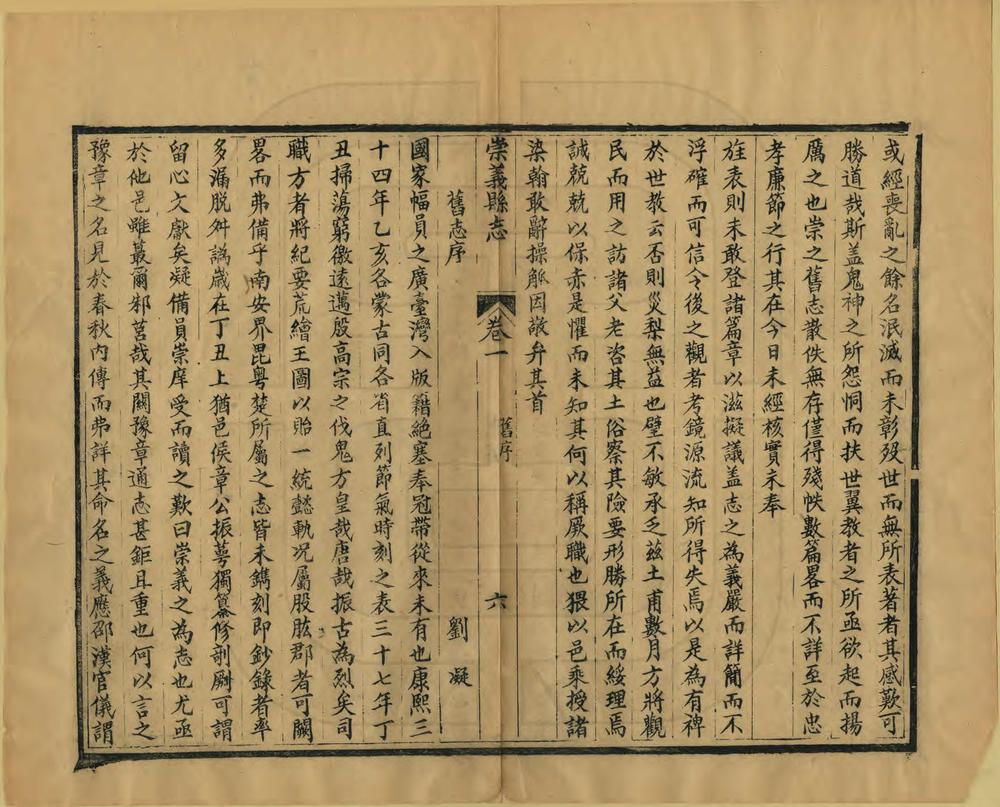 或經喪亂之餘名泯滅而未彰歿世而無所表著者其感歎可
勝道哉斯盖鬼神之所怨恫而扶世翼教者之所亟欲起而揚
厲之也崇之舊志散佚無存僅得殘帙數篇畧而不詳至於忠
孝廉節之行其在今日未經核實未奉
旌表則未敢登諸篇章以滋擬議盖志之為義嚴而詳簡而不
浮確而可信令後之觀者考鏡源流知所得失焉以是為有裨
於世教云否則災梨無益也璧不敏承乏茲土甫數月方將觀
民而用之訪諸父老咨其土俗察其險要形勝所在而綏理焉
誠兢兢以保赤是懼而未知其何以稱厥職也猥以邑乘授諸
染翰敢辭操觚因敬弁其首
崇義縣志
卷一
舊序
六
舊志序
劉凝
國家幅員之廣臺灣入版籍絕塞奉冠帶從來未有也康熙三
十四年乙亥各蒙古同各省直列節氣時刻之表三十七年丁
丑掃蕩窮徼遠邁殷高宗之伐鬼方皇哉唐哉振古為烈矣司
職方者將紀要荒繪王圖以貽一統懿軌况屬股肱郡者可闕
畧而弗備乎南安界毘粵楚所屬之志皆未鐫刻即鈔錄者率
多漏脱舛譌歲在丁丑上猶邑侯章公振萼獨纂修剞劂可謂
留心文獻矣凝備員崇庠受而讀之歎曰崇義之為志也尤亟
於他邑雖蕞爾邾莒哉其關豫章通志甚鉅且重也何以言之
豫章之名見於春秋内傳而弗詳其命名之義應邵漢官儀謂